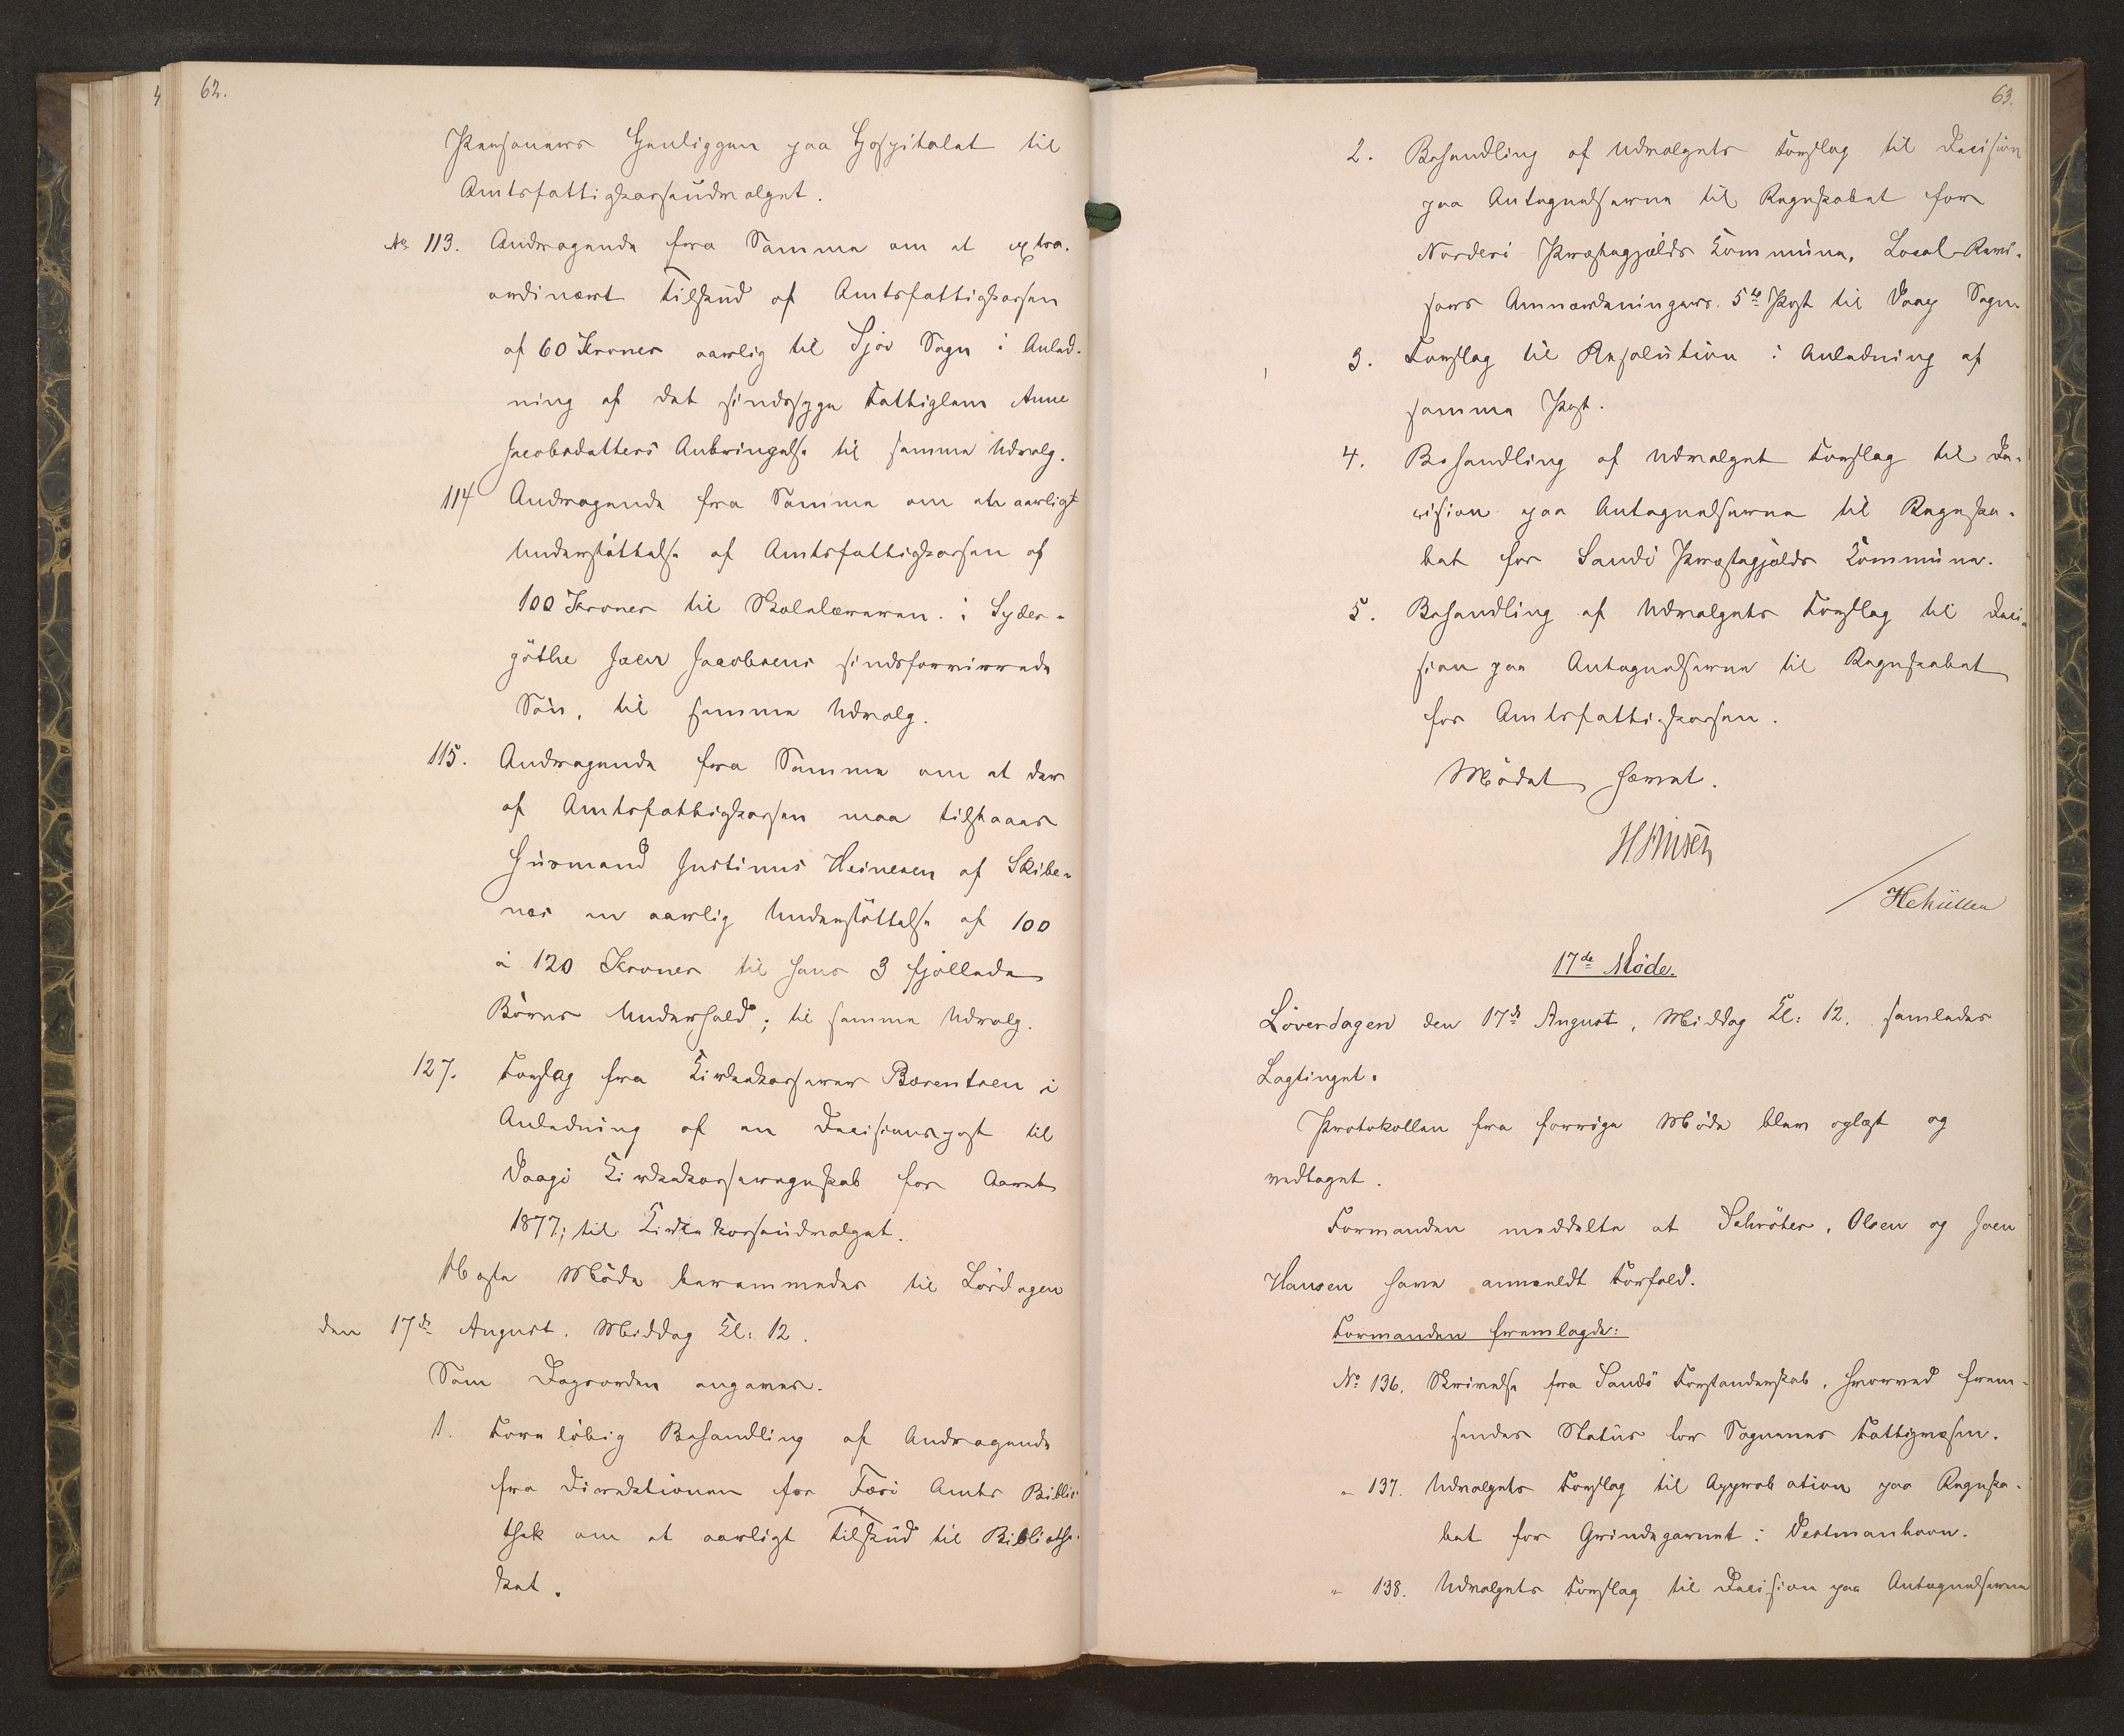 62.
Personers Henliggen paa Hospitalet til
Amtsfattigkasseudvalget.
No 113. Andragende fra Samme om et extra-
ordinært Tilskud af Amtsfattigkassen
af 60 Kroner aarlig til Sjov Sogn i Anled-
ning af det sindssyge Fattiglem Anne
Jacobsdatters Anbringelse til samme Udvalg.
114 Andragende fra Samme om en aarligt
Understøttelse af Amtsfattigkassen af
100 Kroner til Skolelæreren i Syder-
gøthe Joen Jacobsens sindsforvirrede
Søn, til samme Udvalg.
115. Andragende fra Samme om at der
af Amtsfattigkassen maa tilstaaes
Huusmand Justinus Heinesen af Skibe-
næs en aarlig Understøttelse af 100
à 120 Kroner til hans 3 fjollede
Børns Underhold; til samme Udvalg.
127. Forslag fra Kirkekasserer Bærentsen i
Anledning af en Decisionspost til
Vaagø Kirkekasseregnskab for Aaret
1877; til Kirkekasseudvalget.
Næste Møde berammedes til Lørdagen
den 17de August. Middag Kl: 12.
Som Dagsorden angaves.
1. Foreløbig Behandling af Andragende
fra Direktionen for Færø Amts Biblio
thek om et aarligt Tilskud til Bibliothe-
ket.
63.
2. Behandling af Udvalgets Forslag til Decision
paa Antegnelserne til Regnskabet for
Norderø Præstegjælds Kommune, Local-Revi-
sors Anmærkningers 5te Post til Vaag Sogn.
3. Forslag til Resolution i Anledning af
samme Post.
4. Behandling af Udvalget Forslag til De-
cision paa Antegnelserne til Regnska-
bet for Sandø Præstegjælds Kommune.
5. Behandling af Udvalgets Forslag til Deci-
sion paa Antegnelserne til Regnskabet
for Amtsfattigkassen.
Mødet hævet.
17de Møde.
Løverdagen den 17de August, Middag Kl: 12. samledes
Lagtinget.
Protokollen fra forrige Møde blev oplæst og
vedtaget.
Formanden meddelte at Schrøter, Olsen og Joen
Hansen have anmeldt Forfald.
Formanden fremlagde:
No 136. Skrivelse fra Sandø Forstanderskab, hvorved frem-
sendes Status for Sognenes Fattigvæsen.
" 137. Udvalgets Forslag til Approbation paa Regnska-
bet for Grindegarnet i Vestmanhavn.
" 138. Udvalgets Forslag til Decision paa Antegnelserne